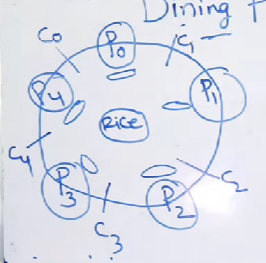 Dining
C0
P0
C1
P4
P1
Rice
C4
P3
P2
C2
C3